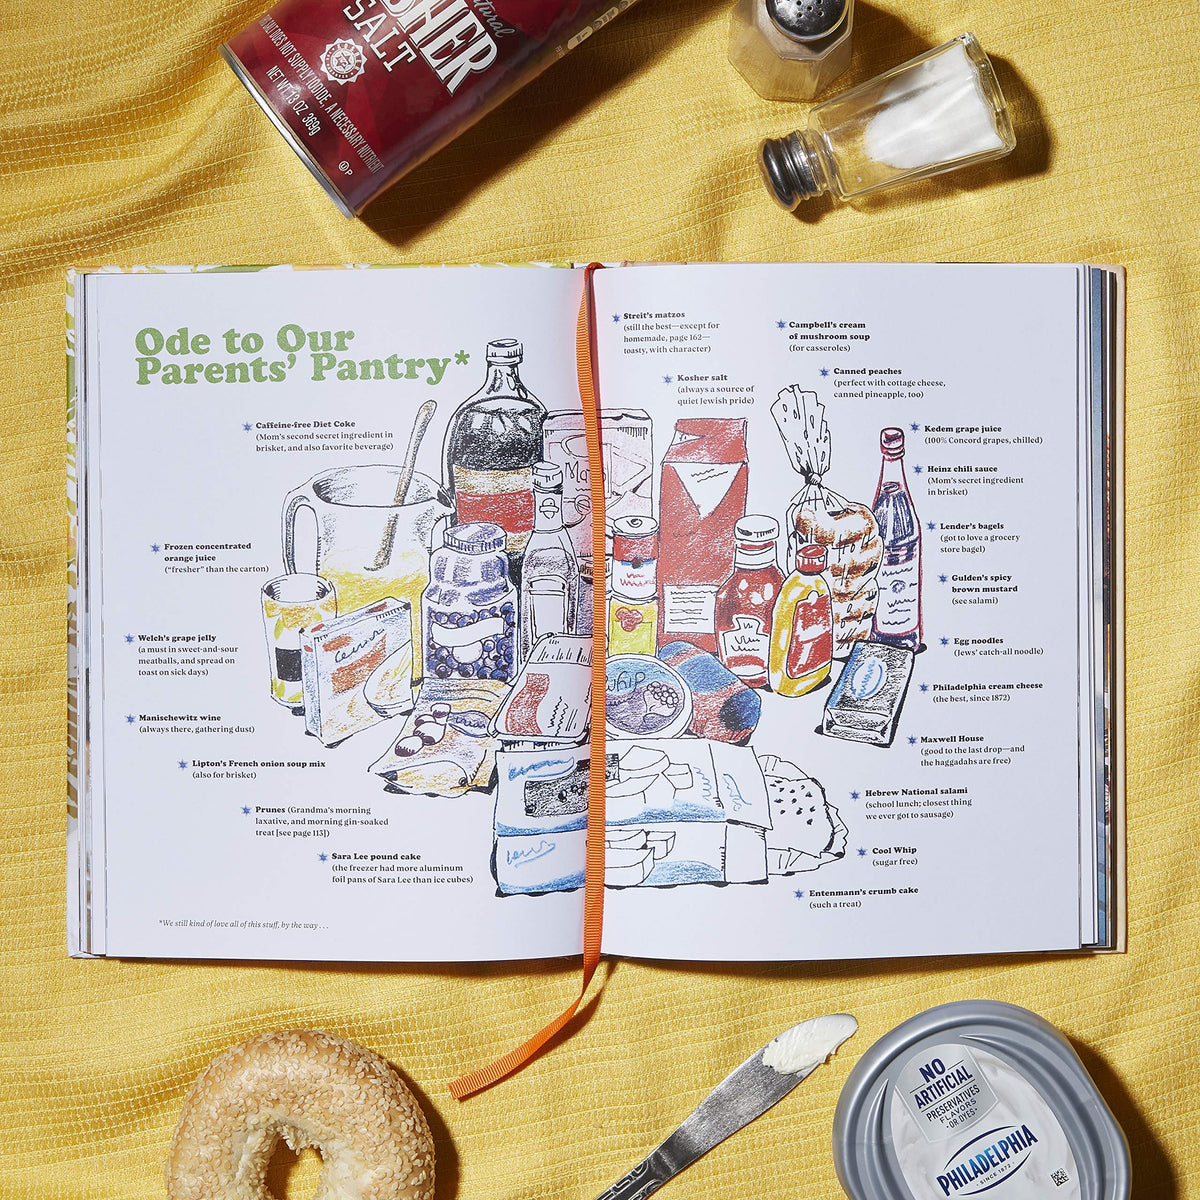 Natural
KOSHER
SALT
THIS SALT DOES NOT SUPPLY IODIDE, A NECESSARY NUTRIENT
NET WT 13 OZ 369g
Ode to Our
Parents' Pantry*
Caffeine-free Diet Coke
(Mom's second secret ingredient in
brisket, and also favorite beverage)
Frozen concentrated
orange juice
("fresher" than the carton)
Welch's grape jelly
(a must in sweet-and-sour
meatballs, and spread on
toast on sick days)
Manischewitz wine
(always there, gathering dust)
Lipton's French onion soup mix
(also for brisket)
Prunes (Grandma's morning
laxative, and morning gin-soaked
treat [see page 113])
Sara Lee pound cake
(the freezer had more aluminum
foil pans of Sara Lee than ice cubes)
*We still kind of love all of this stuff, by the way . . .
Streit's matzos
(still the best—except for
homemade, page 162—
toasty, with character)
Kosher salt
(always a source of
quiet Jewish pride)
Campbell's cream
of mushroom soup
(for casseroles)
Canned peaches
(perfect with cottage cheese,
canned pineapple, too)
Kedem grape juice
(100% Concord grapes, chilled)
Heinz chili sauce
(Mom's secret ingredient
in brisket)
Lender's bagels
(got to love a grocery
store bagel)
Gulden's spicy
brown mustard
(see salami)
Egg noodles
(Jews' catch-all noodle)
Philadelphia cream cheese
(the best, since 1872)
Maxwell House
(good to the last drop—and
the haggadahs are free)
Hebrew National salami
(school lunch; closest thing
we ever got to sausage)
Cool Whip
(sugar free)
Entenmann's crumb cake
(such a treat)
WHIP
NO
ARTIFICIAL
PRESERVATIVES
FLAVORS
• OR DYES •
PHILADELPHIA
• SINCE 1872 •